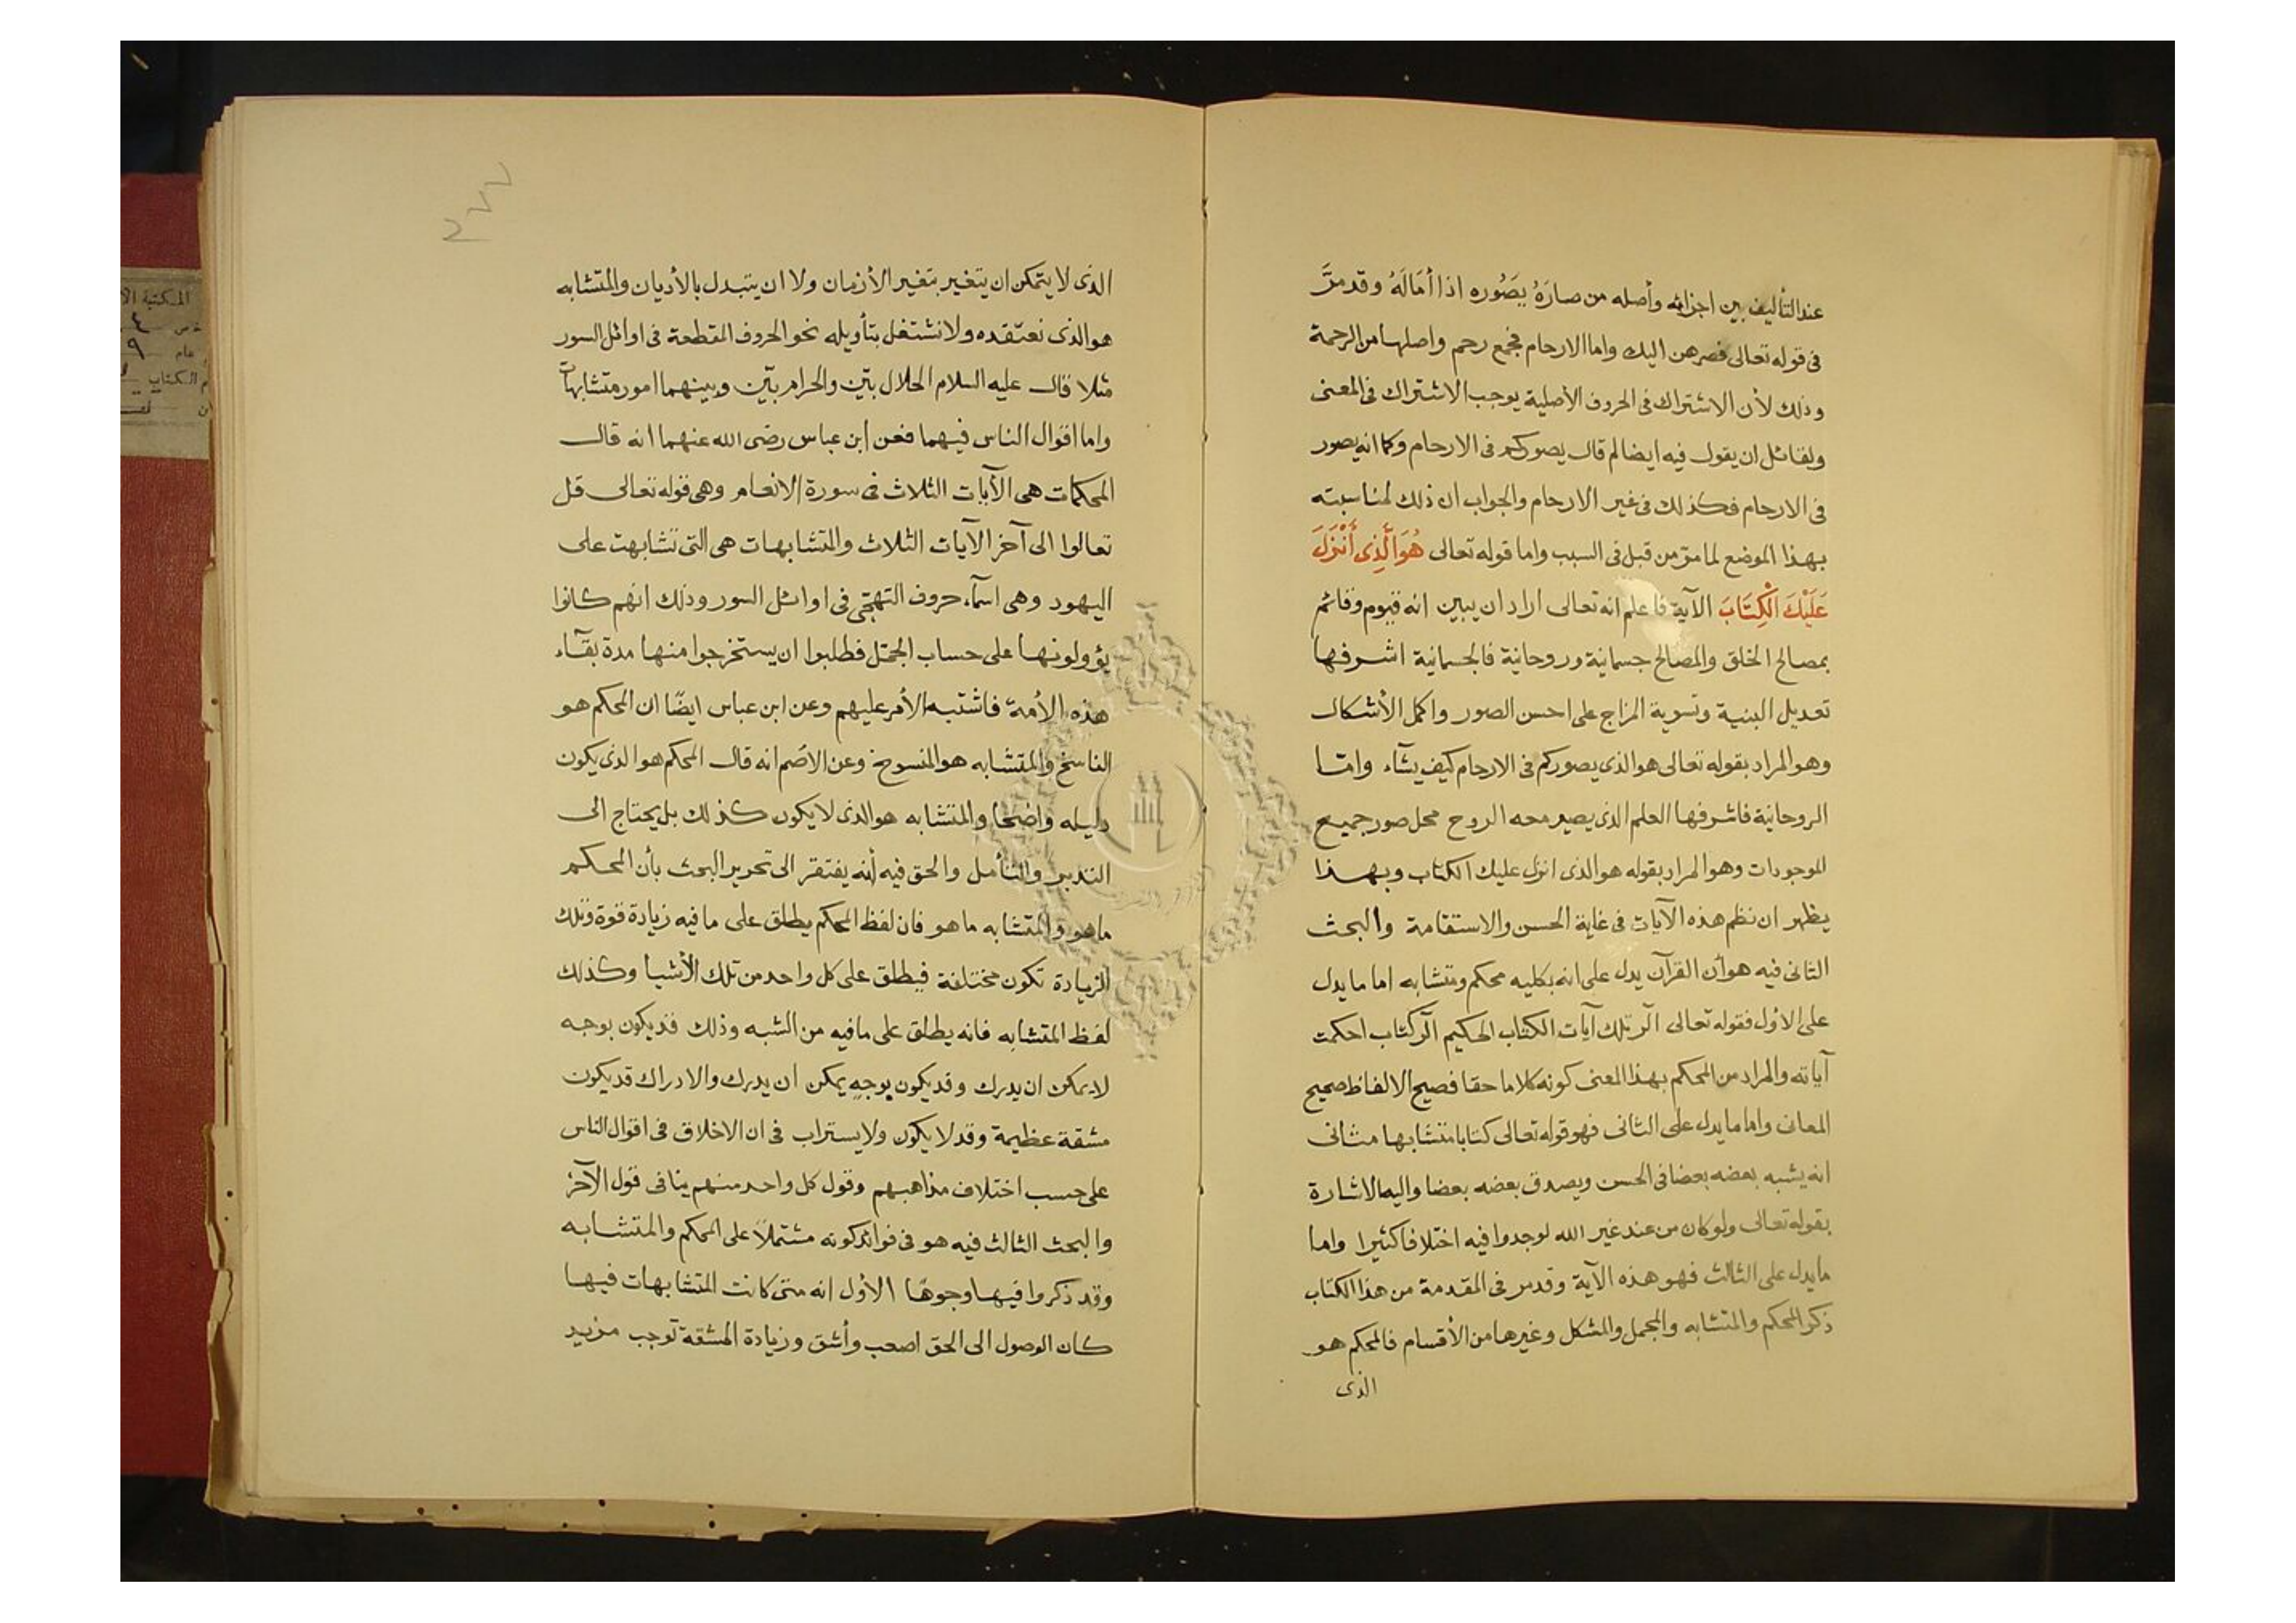 عند التأليف بين اجزائه وأصله من صارَهُ يصَُوره اذا أمَالَهُ وقد مرَّ
فى قوله تعالى فصرهن اليك واما الارحام فجمع رحم واصلها من الرحمة
وذلك لأن الاشتراك فى الحروف الأصلية يوجب الاشتراك فى المعنى
ولقائل ان يقول فيه ايضا لم قال يصوركم فى الارحام وكما انه يصور
فى الارحام فكذلك فى غير الارحام والجواب ان ذلك لمناسبته
بهذا الموضع لما مرّ من قبل فى السبب واما قوله تعالى هُوَ الَّذِى أَنْزَلَ
عَلَيْكَ الْكِتَابَ الآية فاعلم انه تعالى اراد ان يبين انه قيوم وقائم
بمصالح الخلق والمصالح جسمانية وروحانية فالجسمانية اشرفها
تعديل البنية وتسوية المزاج على احسن الصور واكمل الأشكال
وهو المراد بقوله تعالى هو الذى يصوركم فى الارحام كيف يشآء وامّا
الروحانية فاشرفها العلم الذى يصير معه الروح محل صور جميع
الموجودات وهو المراد بقوله هو الذى انزل عليك الكتاب وبهذا
يظهر ان نظم هذه الآيات فى غاية الحسن والاستقامة والبحث
الثانى فيه هو أن القرآن يدل على انه بكليه محكم ومتشابه اما ما يدل
على الاول فقوله تعالى الٓر تلك آيات الكتاب الحكيم الٓر كتاب احكمت
آياته والمراد من المحكم بهذا المعنى كونه كلاما حقا فصيح الالفاظ صحيح
المعانى واما ما يدل على الثانى فهو قوله تعالى كتابا متشابها مثانى
انه يشبه بعضه بعضا فى الحسن ويصدق بعضه بعضا واليه الاشارة
بقوله تعالى ولو كان من عند غير الله لوجدوا فيه اختلافا كثيرا واما
ما يدل على الثالث فهو هذه الآية وقد مر فى المقدمة من هذا الكتاب
ذكر المحكم والمتشابه والمجمل والمشكل وغيرها من الأقسام فالمحكم هو
الذى
٢٧٧
الذى لا يتمكن ان يتغير بتغير الأزمان ولا ان يتبدل بالأديان والمتشابه
هو الذى نعتقده ولا نشتغل بتأويله نحو الحروف المقطعة فى اوائل السور
مثلا قال عليه السلام الحلال بيّن والحرام بيّن وبينهما امور متشابهات
واما اقوال الناس فيهما فعن ابن عباس رضى الله عنهما انه قال
المحكمات هى الآيات الثلاث فى سورة الانعام وهى قوله تعالى قل
تعالوا الى آخر الآيات الثلاث والمتشابهات هى التى تشابهت على
اليهود وهى اسمآء حروف التهجّى فى اوائل السور وذلك انهم كانوا
يؤولونها على حساب الجمّل فطلبوا ان يستخرجوا منها مدة بقآء
هذه الأمة فاشتبه الأمر عليهم وعن ابن عباس ايضًا ان المحكم هو
الناسخ والمتشابه هو المنسوخ وعن الاصم انه قال المحكم هو الذى يكون
دليله واضحا والمتشابه هو الذى لا يكون كذلك بل يحتاج الى
التدبر والتأمل والحق فيه أنه يفتقر الى تحرير البحث بأن المحكم
ما هو والمتشابه ما هو فان لفظ المحكم يطلق على ما فيه زيادة قوة وتلك
الزيادة تكون مختلفة فيطلق على كل واحد من تلك الأشيا وكذلك
لفظ المتشابه فانه يطلق على ما فيه من الشبه وذلك قد يكون بوجه
لا يمكن ان يدرك وقد يكون بوجهٍ يمكن ان يدرك والادراك قد يكون
مشقة عظيمة وقد لا يكون ولا يستراب فى ان الاختلاف فى اقوال الناس
على حسب اختلاف مذاهبهم وقول كل واحد منهم ينافى قول الآخر
والبحث الثالث فيه هو فى فوائد كونه مشتملاً على المحكم والمتشابه
وقد ذكروا فيها وجوهًا الأول انه متى كانت المتشابهات فيها
كان الوصول الى الحق اصعب وأشق وزيادة المشقة توجب مزيد